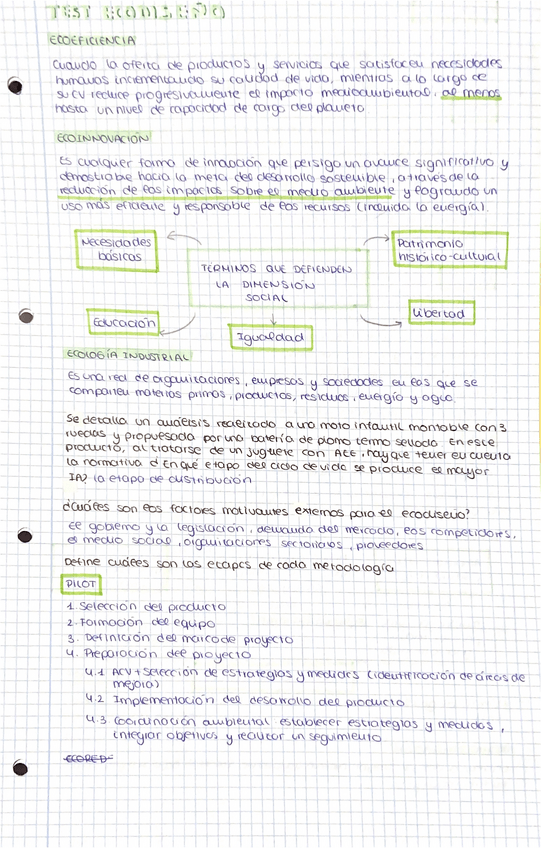 TEST ECODISEÑO
ECOEFICIENCIA
Cuando la oferta de productos y servicios que satisfacen necesidades
humanas incrementando su calidad de vida, mientras a lo largo de
su CV reduce progresivamente el impacto medioambiental, al menos
hasta un nivel de capacidad de carga del planeta
ECOINNOVACIÓN
Es cualquier forma de innovación que persiga un avance significativo y
demostrable hacia la meta del desarrollo sostenible, a través de la
reducción de los impactos sobre el medio ambiente y logrando un
uso más eficiente y responsable de los recursos (incluida la energía).
Necesidades
básicas
Patrimonio
histórico-cultural
TÉRMINOS QUE DEFIENDEN
LA DIMENSIÓN
SOCIAL
Educación
Igualdad
Libertad
ECOLOGÍA INDUSTRIAL
Es una red de organizaciones, empresas y sociedades en los que se
comparten materias primas, productos, residuos, energía y agua.
Se detalla un análisis realizado a una moto infantil montable con 3
ruedas y propulsada por una batería de plomo termo sellada. En este
producto, al tratarse de un juguete con AEE, hay que tener en cuenta
la normativa ¿En qué etapa del ciclo de vida se produce el mayor
IA? la etapa de distribución
¿Cuáles son los factores motivantes externos para el ecodiseño?
El gobierno y la legislación, demanda del mercado, los competidores,
el medio social, organizaciones sectoriales, proveedores
Define cuáles son las etapas de cada metodología
PILOT
1. Selección del producto
2. Formación del equipo
3. Definición del marco de proyecto
4. Preparación del proyecto
4.1 ACV + Selección de estrategias y medidas (identificación de áreas de
mejora)
4.2 Implementación del desarrollo del producto
4.3 Coordinación ambiental establecer estrategias y medidas,
integrar objetivos y realizar un seguimiento
ECORED